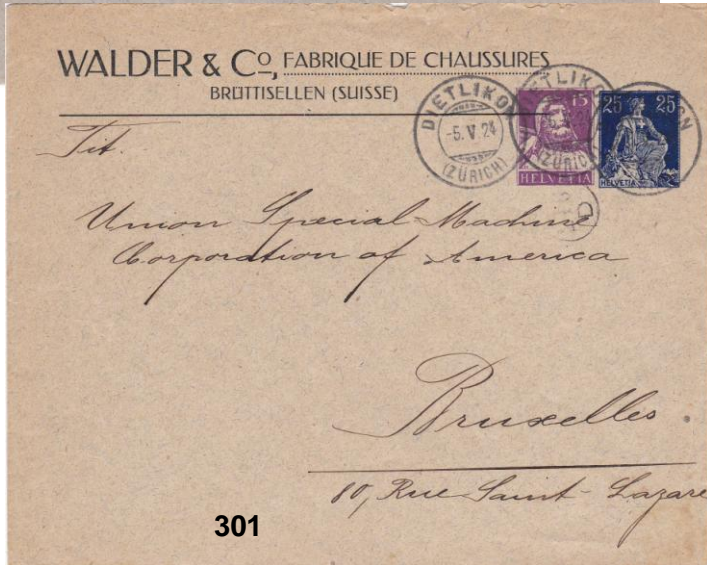 WALDER & Cº, FABRIQUE DE CHAUSSURES
BRÜTTISELLEN (SUISSE)
DIETLIKON
-5. V. 24
(ZÜRICH)
15
HELVETIA
25 25
HELVETIA
Tit.
Union Special Machine
Corporation of America
Bruxelles.
80, Rue Saint-Lazare
301